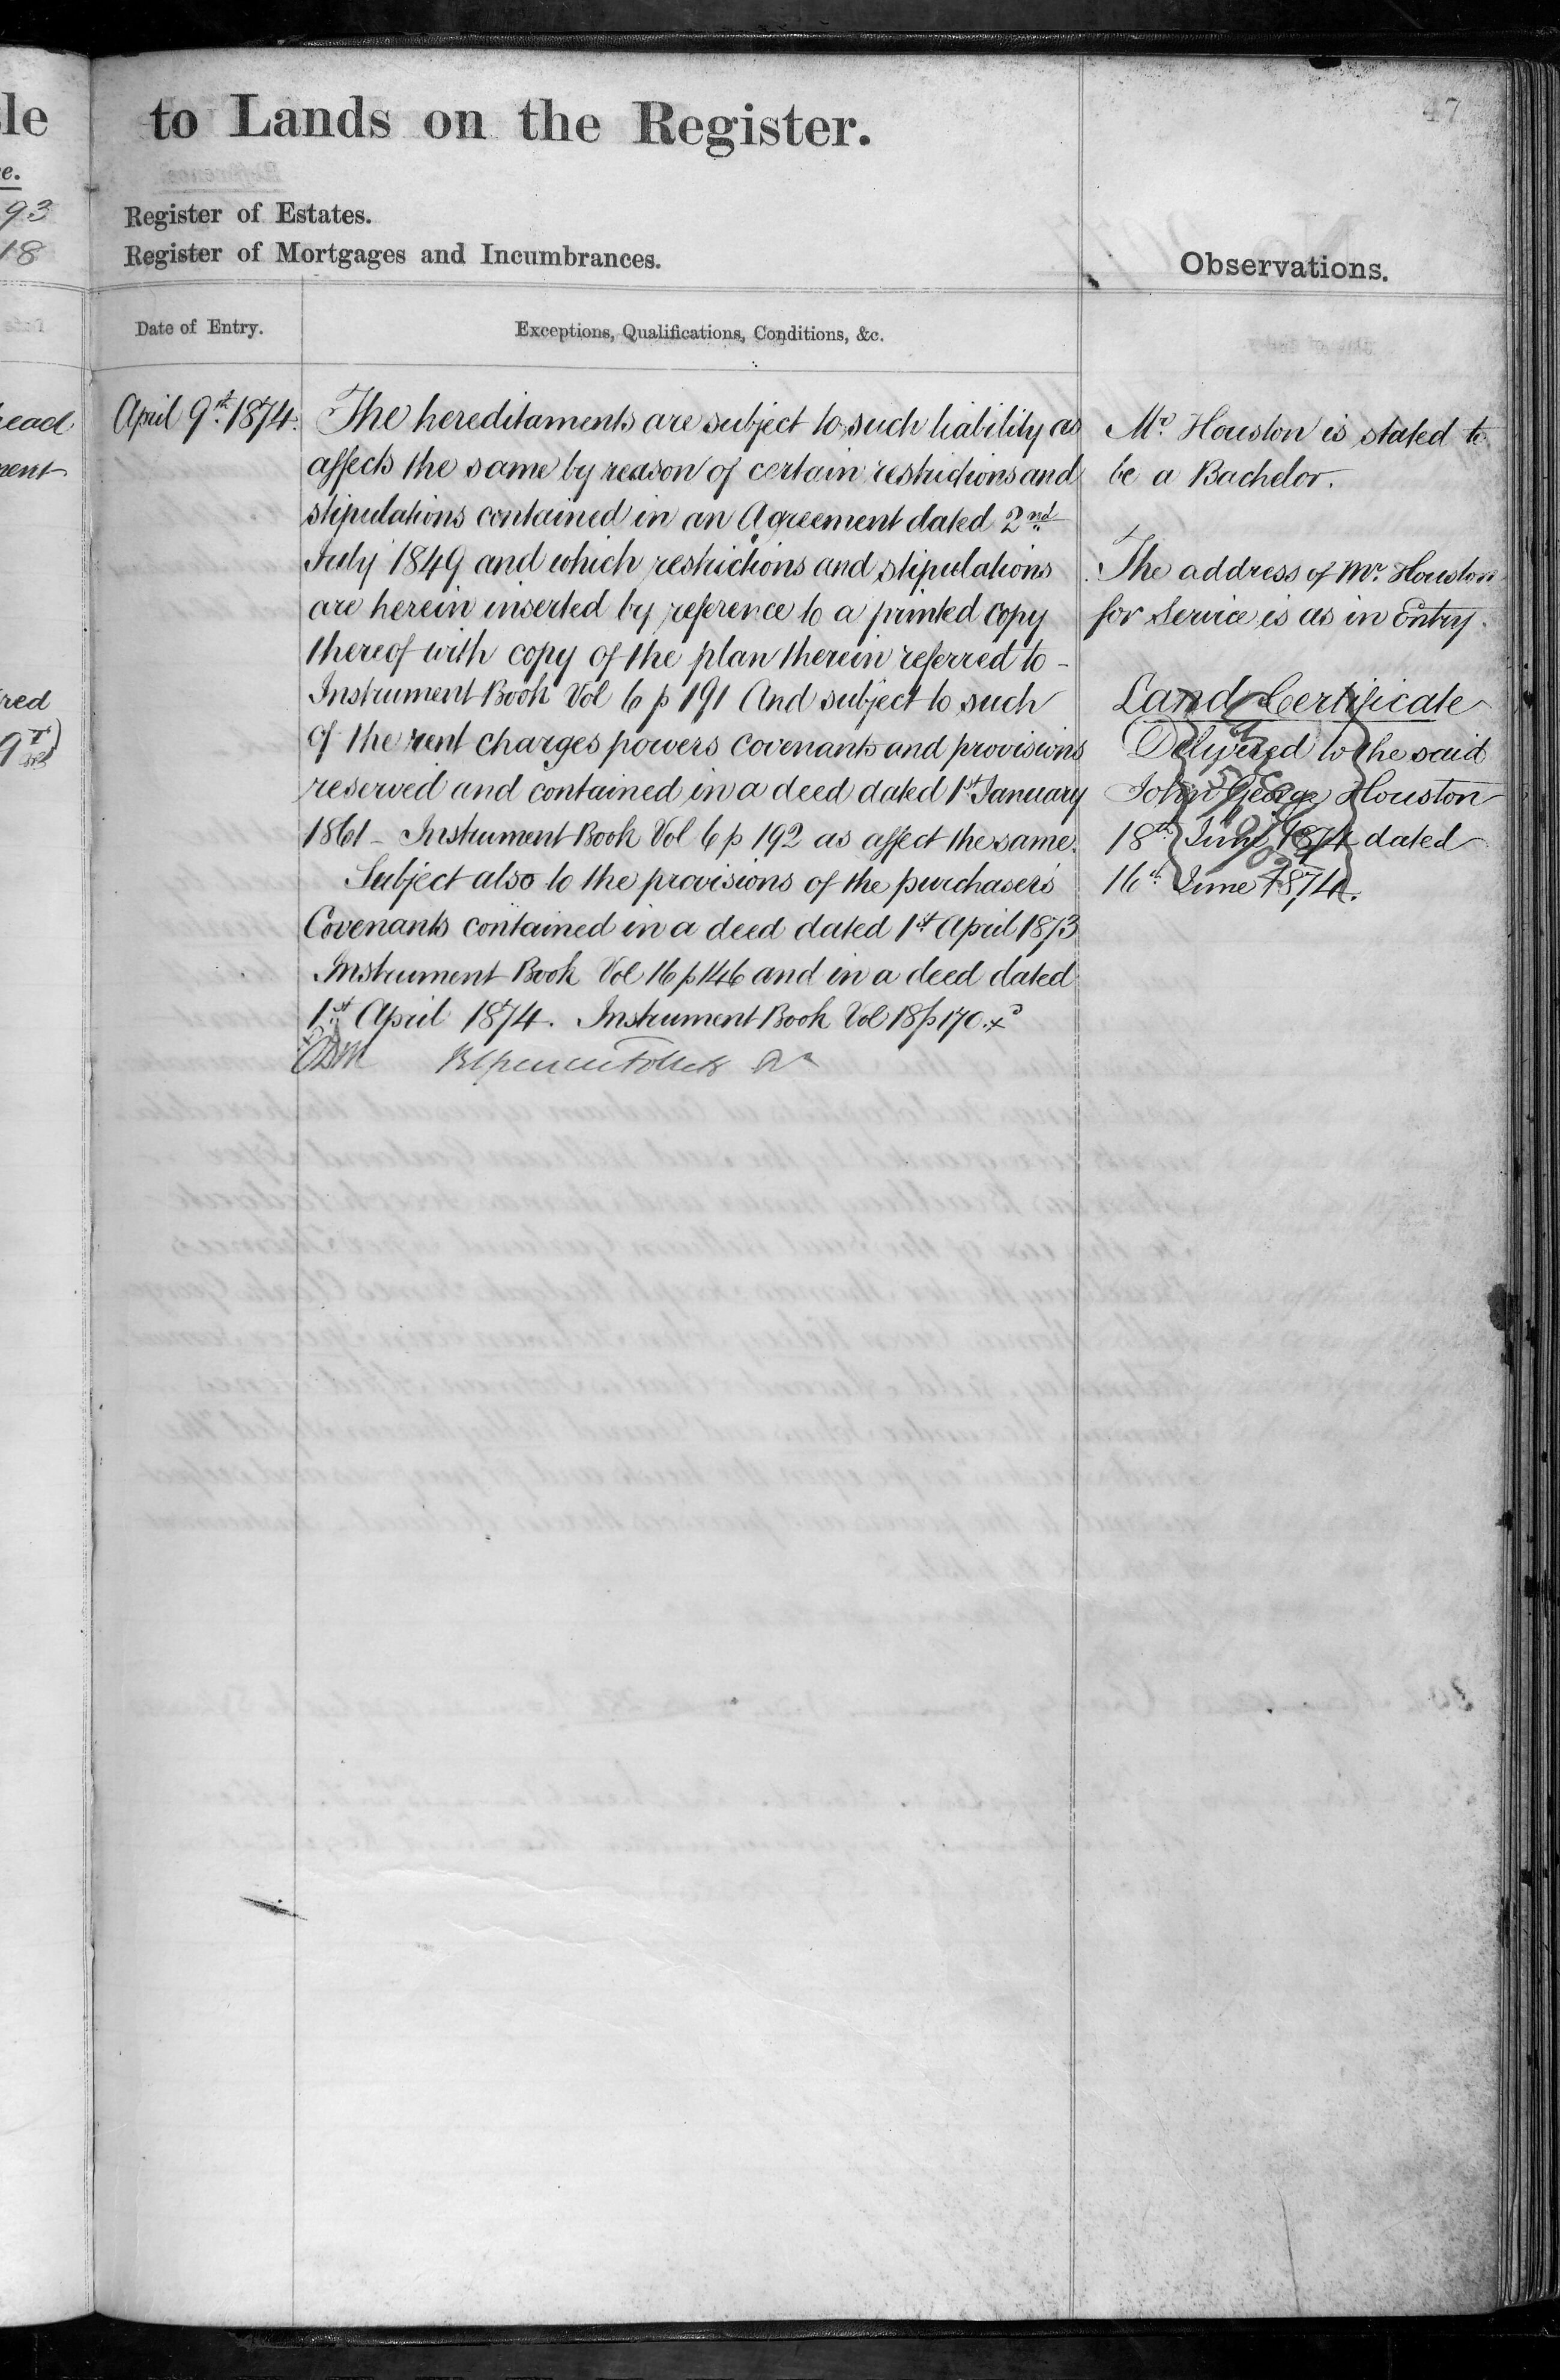 le
to Lands on the Register.
47
e.
93
18
Register of Estates.
Register of Mortgages and Incumbrances.
Observations.
Date of Entry.
Exceptions, Qualifications, Conditions, &c.
ead
ent
red
April 9th 1874.
The hereditaments are subject to such liability as
affects the same by reason of certain restrictions and
stipulations contained in an Agreement dated 2nd
July 1849 and which restrictions and stipulations
are herein inserted by reference to a printed copy
thereof with copy of the plan therein referred to -
Instrument Book Vol 6 p 191 And subject to such
of the rent charges powers covenants and provisions
reserved and contained in a deed dated 1st January
1861 - Instrument Book Vol 6 p 192 as affect the same.
Subject also to the provisions of the purchasers
Covenants contained in a deed dated 1st April 1873
Instrument Book Vol 16 p 146 and in a deed dated
1st April 1874. Instrument Book Vol 18 p 170.
Mr Houston is stated to
be a Bachelor.
The address of Mr. Houston
for Service is as in Entry.
Land Certificate
Delivered to the said
John George Houston
18th June 1874 dated
16th June 1874.